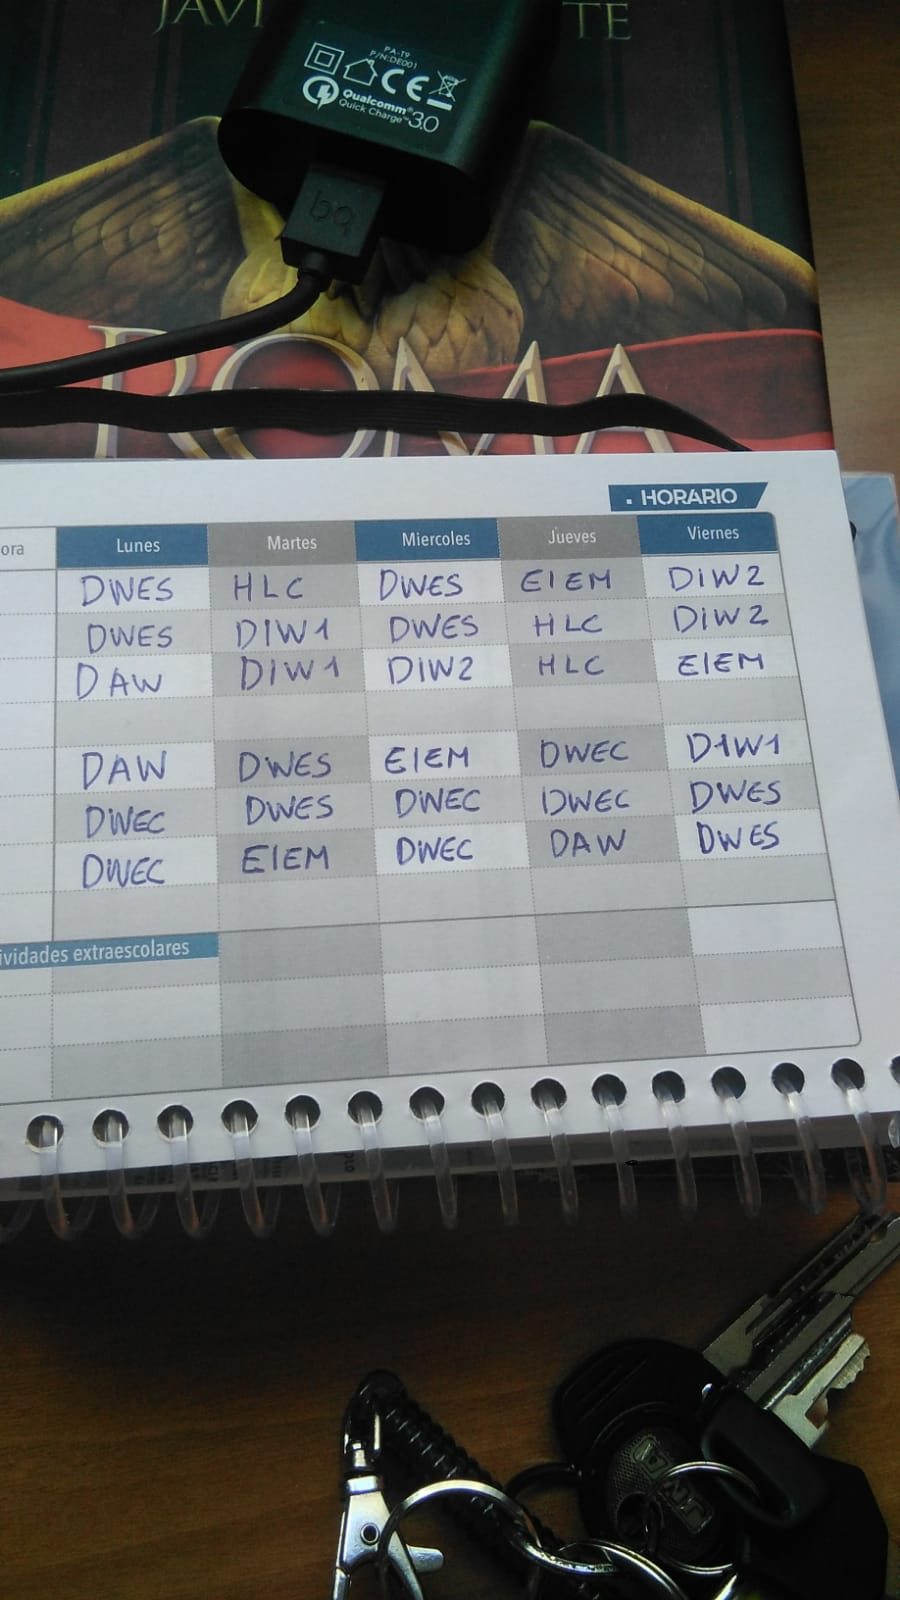 JAVI TE
PA-T9
P/N:DE001
CE
Qualcomm®
Quick Charge™ 3.0
bq
ROMA
. HORARIO
ora Lunes Martes Miercoles Jueves Viernes
DWES HLC DWES EIEM DIW2
DWES DIW1 DWES HLC DIW2
DAW DIW1 DIW2 HLC EIEM
DAW DWES EIEM DWEC DIW1
DWEC DWES DWEC DWEC DWES
DWEC EIEM DWEC DAW DWES
ividades extraescolares